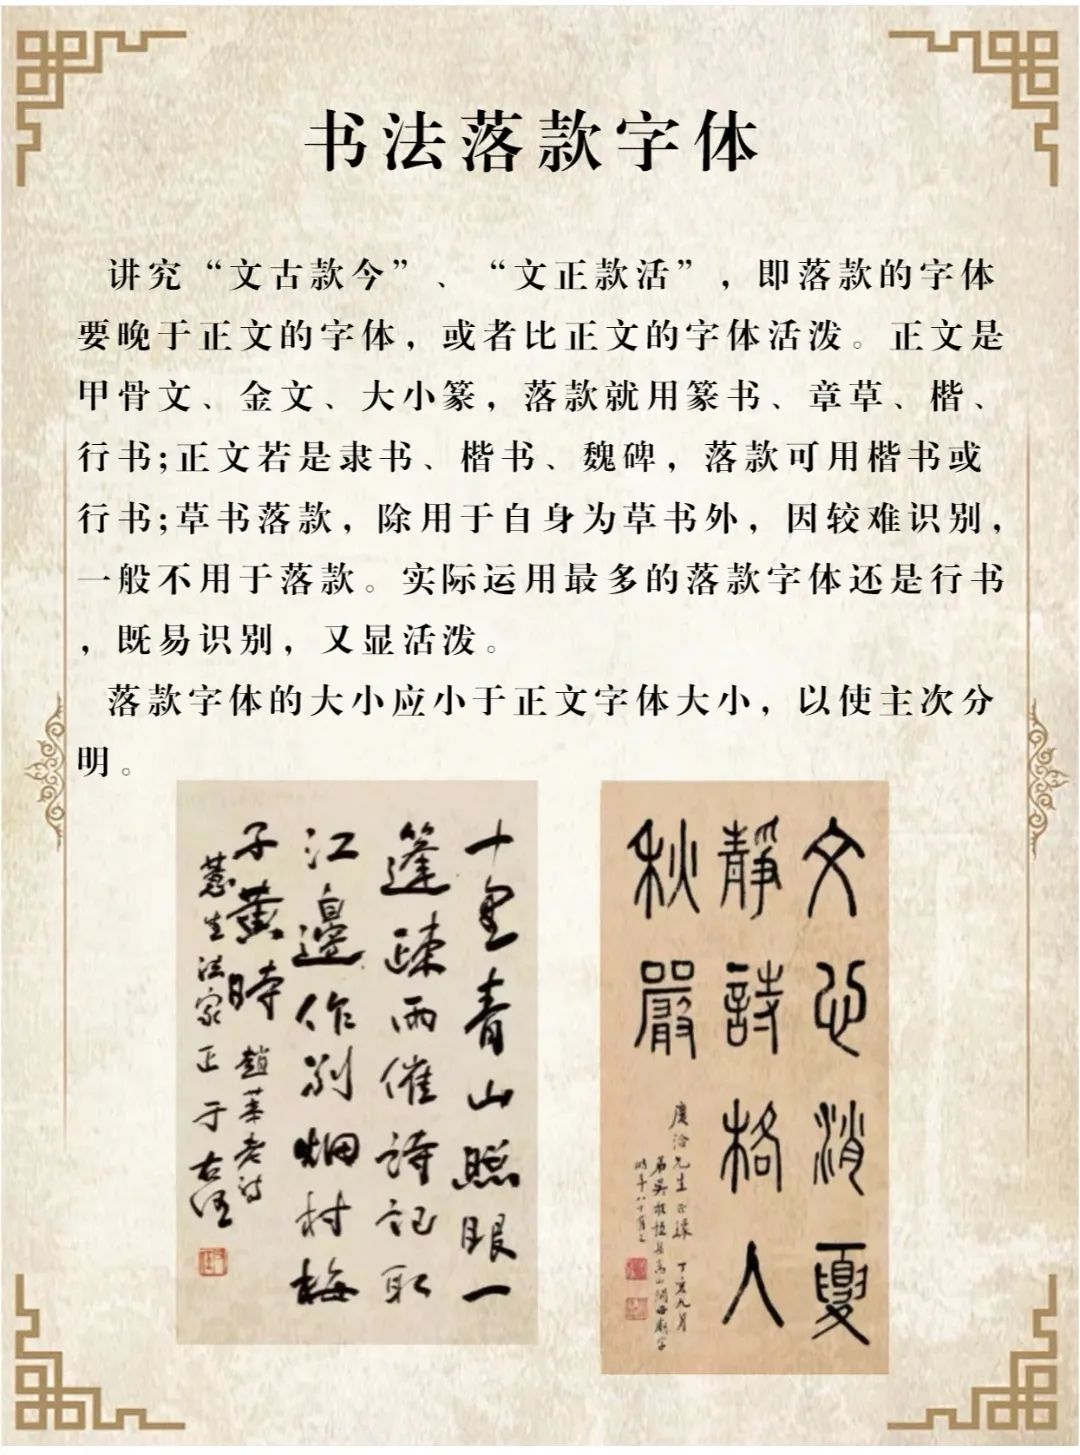 书法落款字体
讲究“文古款今”、“文正款活”，即落款的字体
要晚于正文的字体，或者比正文的字体活泼。正文是
甲骨文、金文、大小篆，落款就用篆书、章草、楷、
行书;正文若是隶书、楷书、魏碑，落款可用楷书或
行书;草书落款，除用于自身为草书外，因较难识别，
一般不用于落款。实际运用最多的落款字体还是行书
，既易识别，又显活泼。
落款字体的大小应小于正文字体大小，以使主次分
明。
十里青山照眼一
篷疎雨催诗记取
江邊作别烟村梅
子黄時
趙菶老诗
生法家正于右任
文心消夏
靜詩格人
秋嚴
先生正 丁亥九月
時年八十